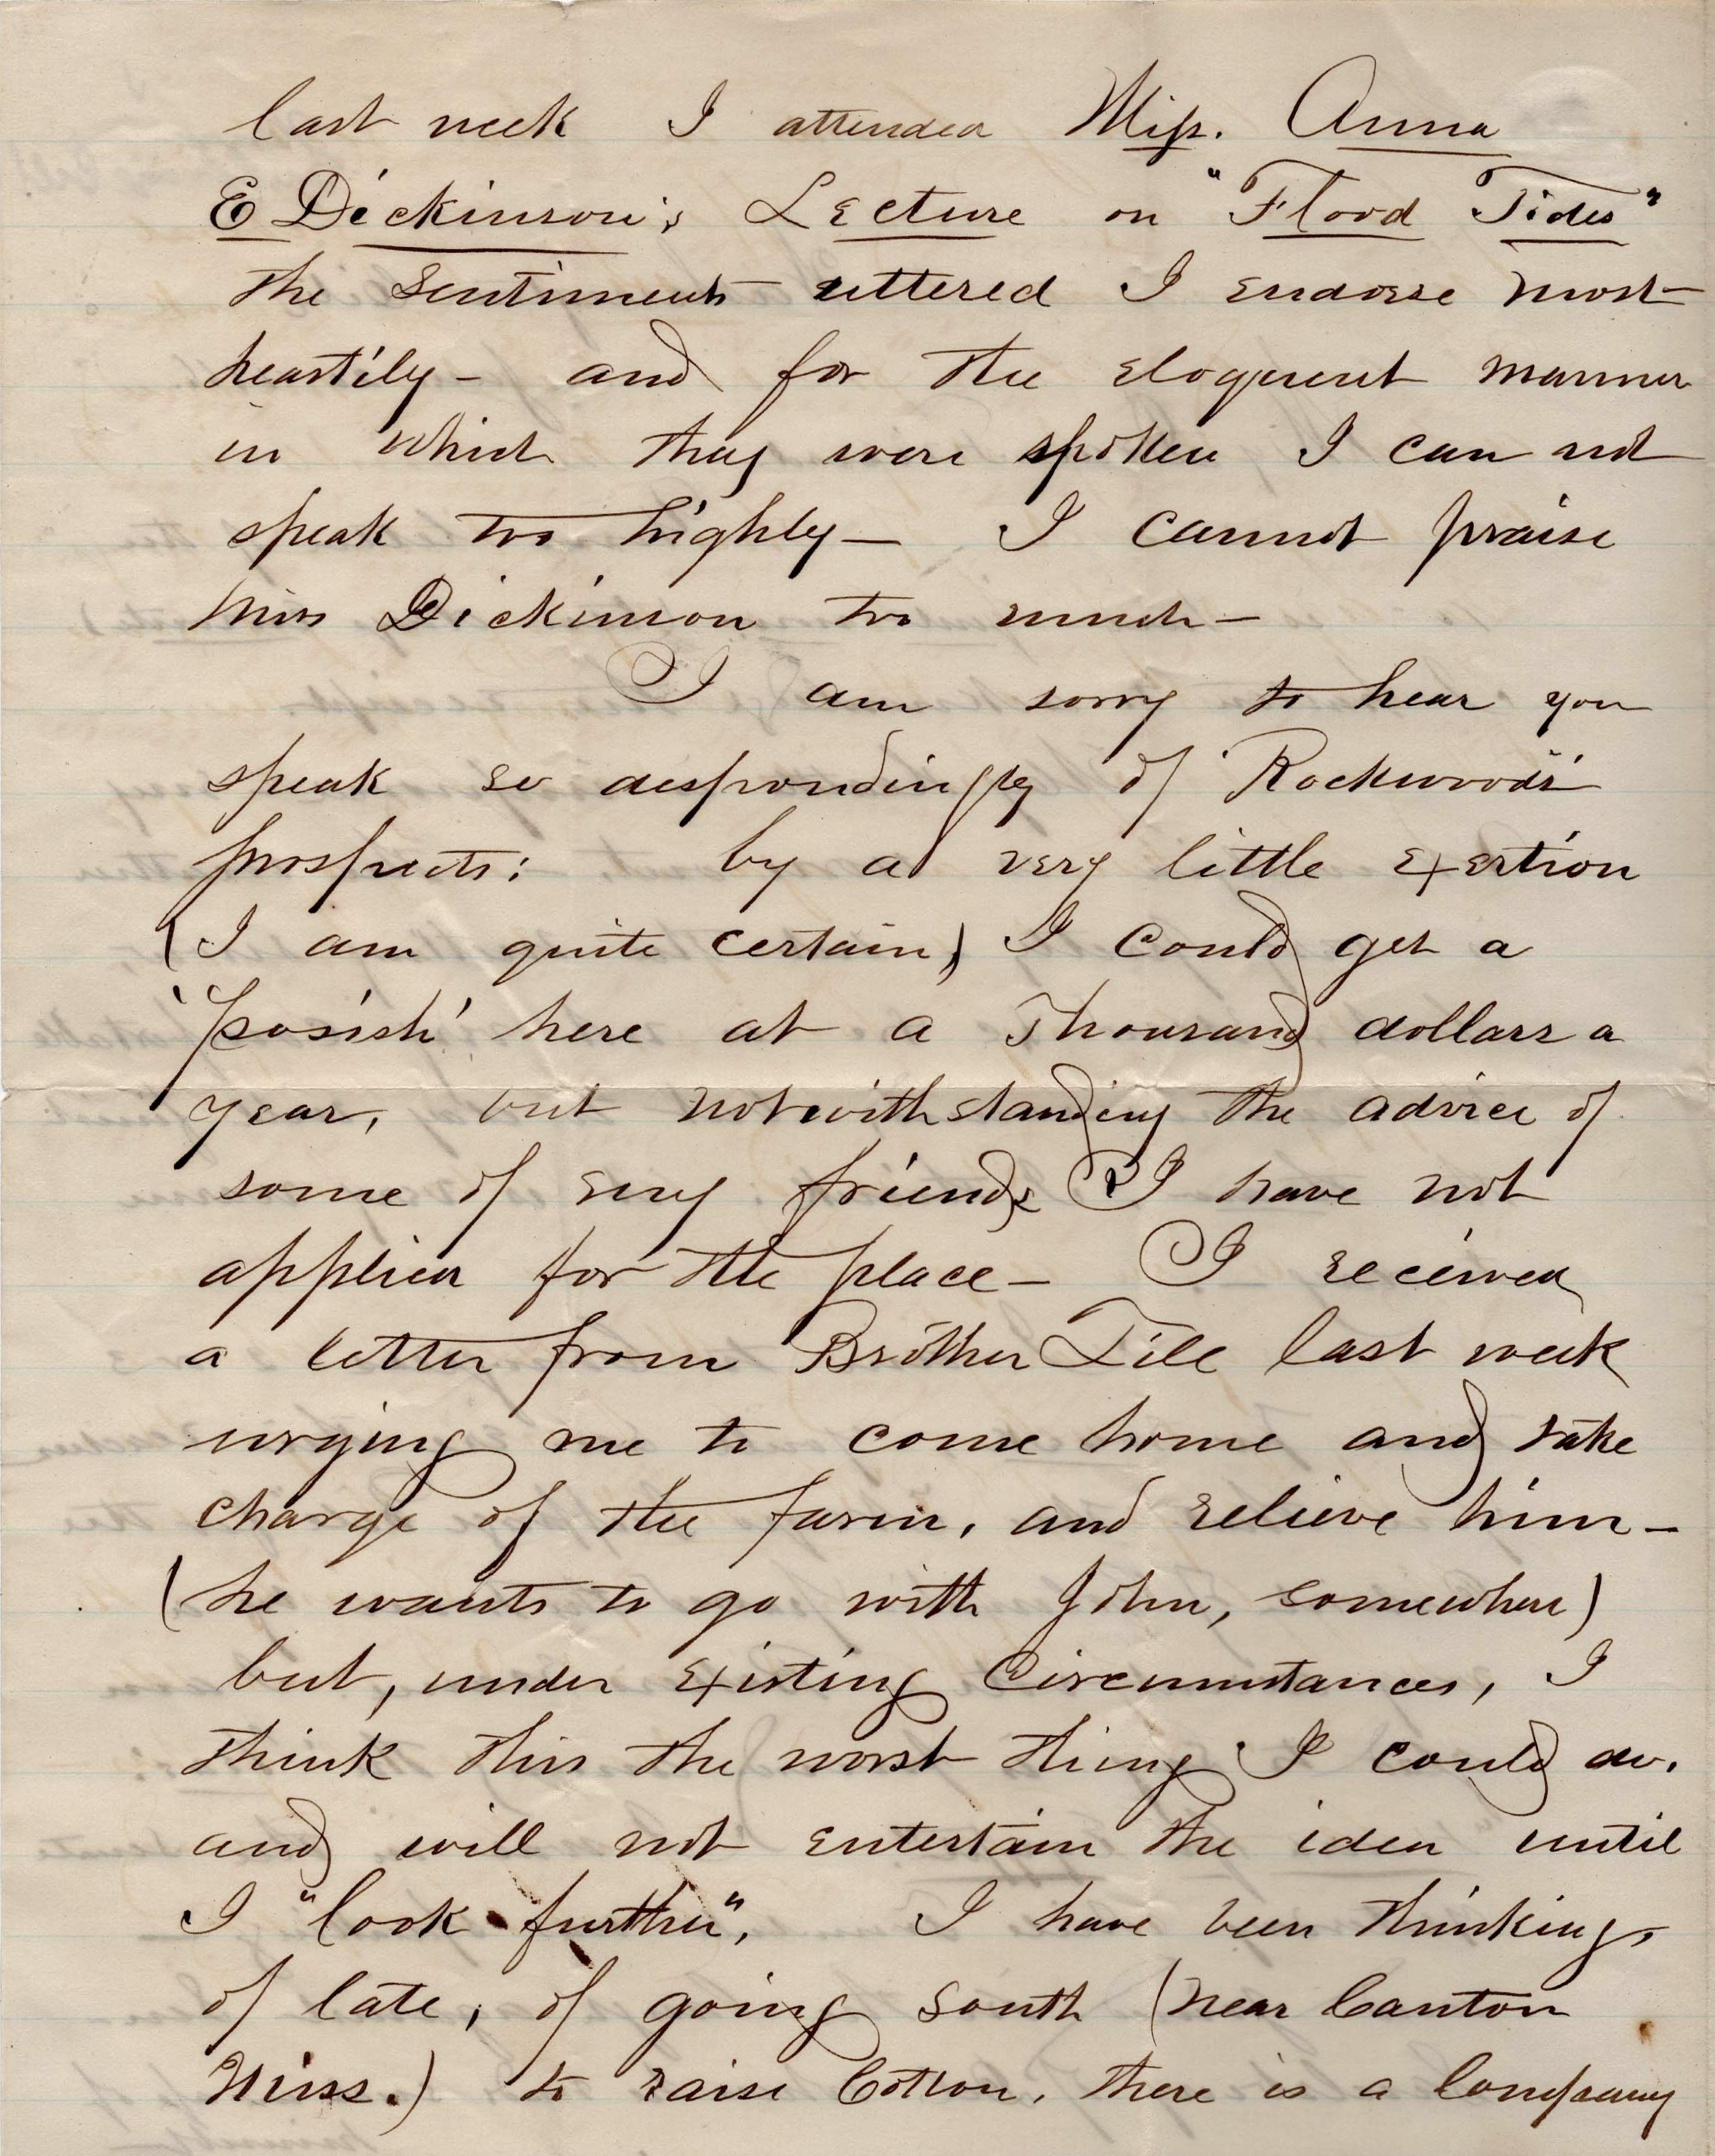 last week I attended Miss. Anna
E Dickinson's Lecture on "Flood Tides"
the sentiments uttered I endorse most
heartily - and for the eloquent manner
in which they were spoken I can not
speak too highly - I cannot praise
Miss Dickinson too much -
I am sorry to hear you
speak so despondingly of Rockwood's
prospects: by a very little exertion
(I am quite certain) I could get a
'posish' here at a Thousand dollars a
year, but notwithstanding the advice of
some of my friends I have not
applied for the place - I received
a letter from Brother Tile last week
urging me to come home and take
charge of the farm, and relieve him -
(he wants to go with John, somewhere)
but, under existing Circumstances, I
think this the worst thing I could do.
and will not entertain the idea until
I "look further", I have been thinking,
of late, of going south (near Canton
Miss.) to raise Cotton, there is a Company